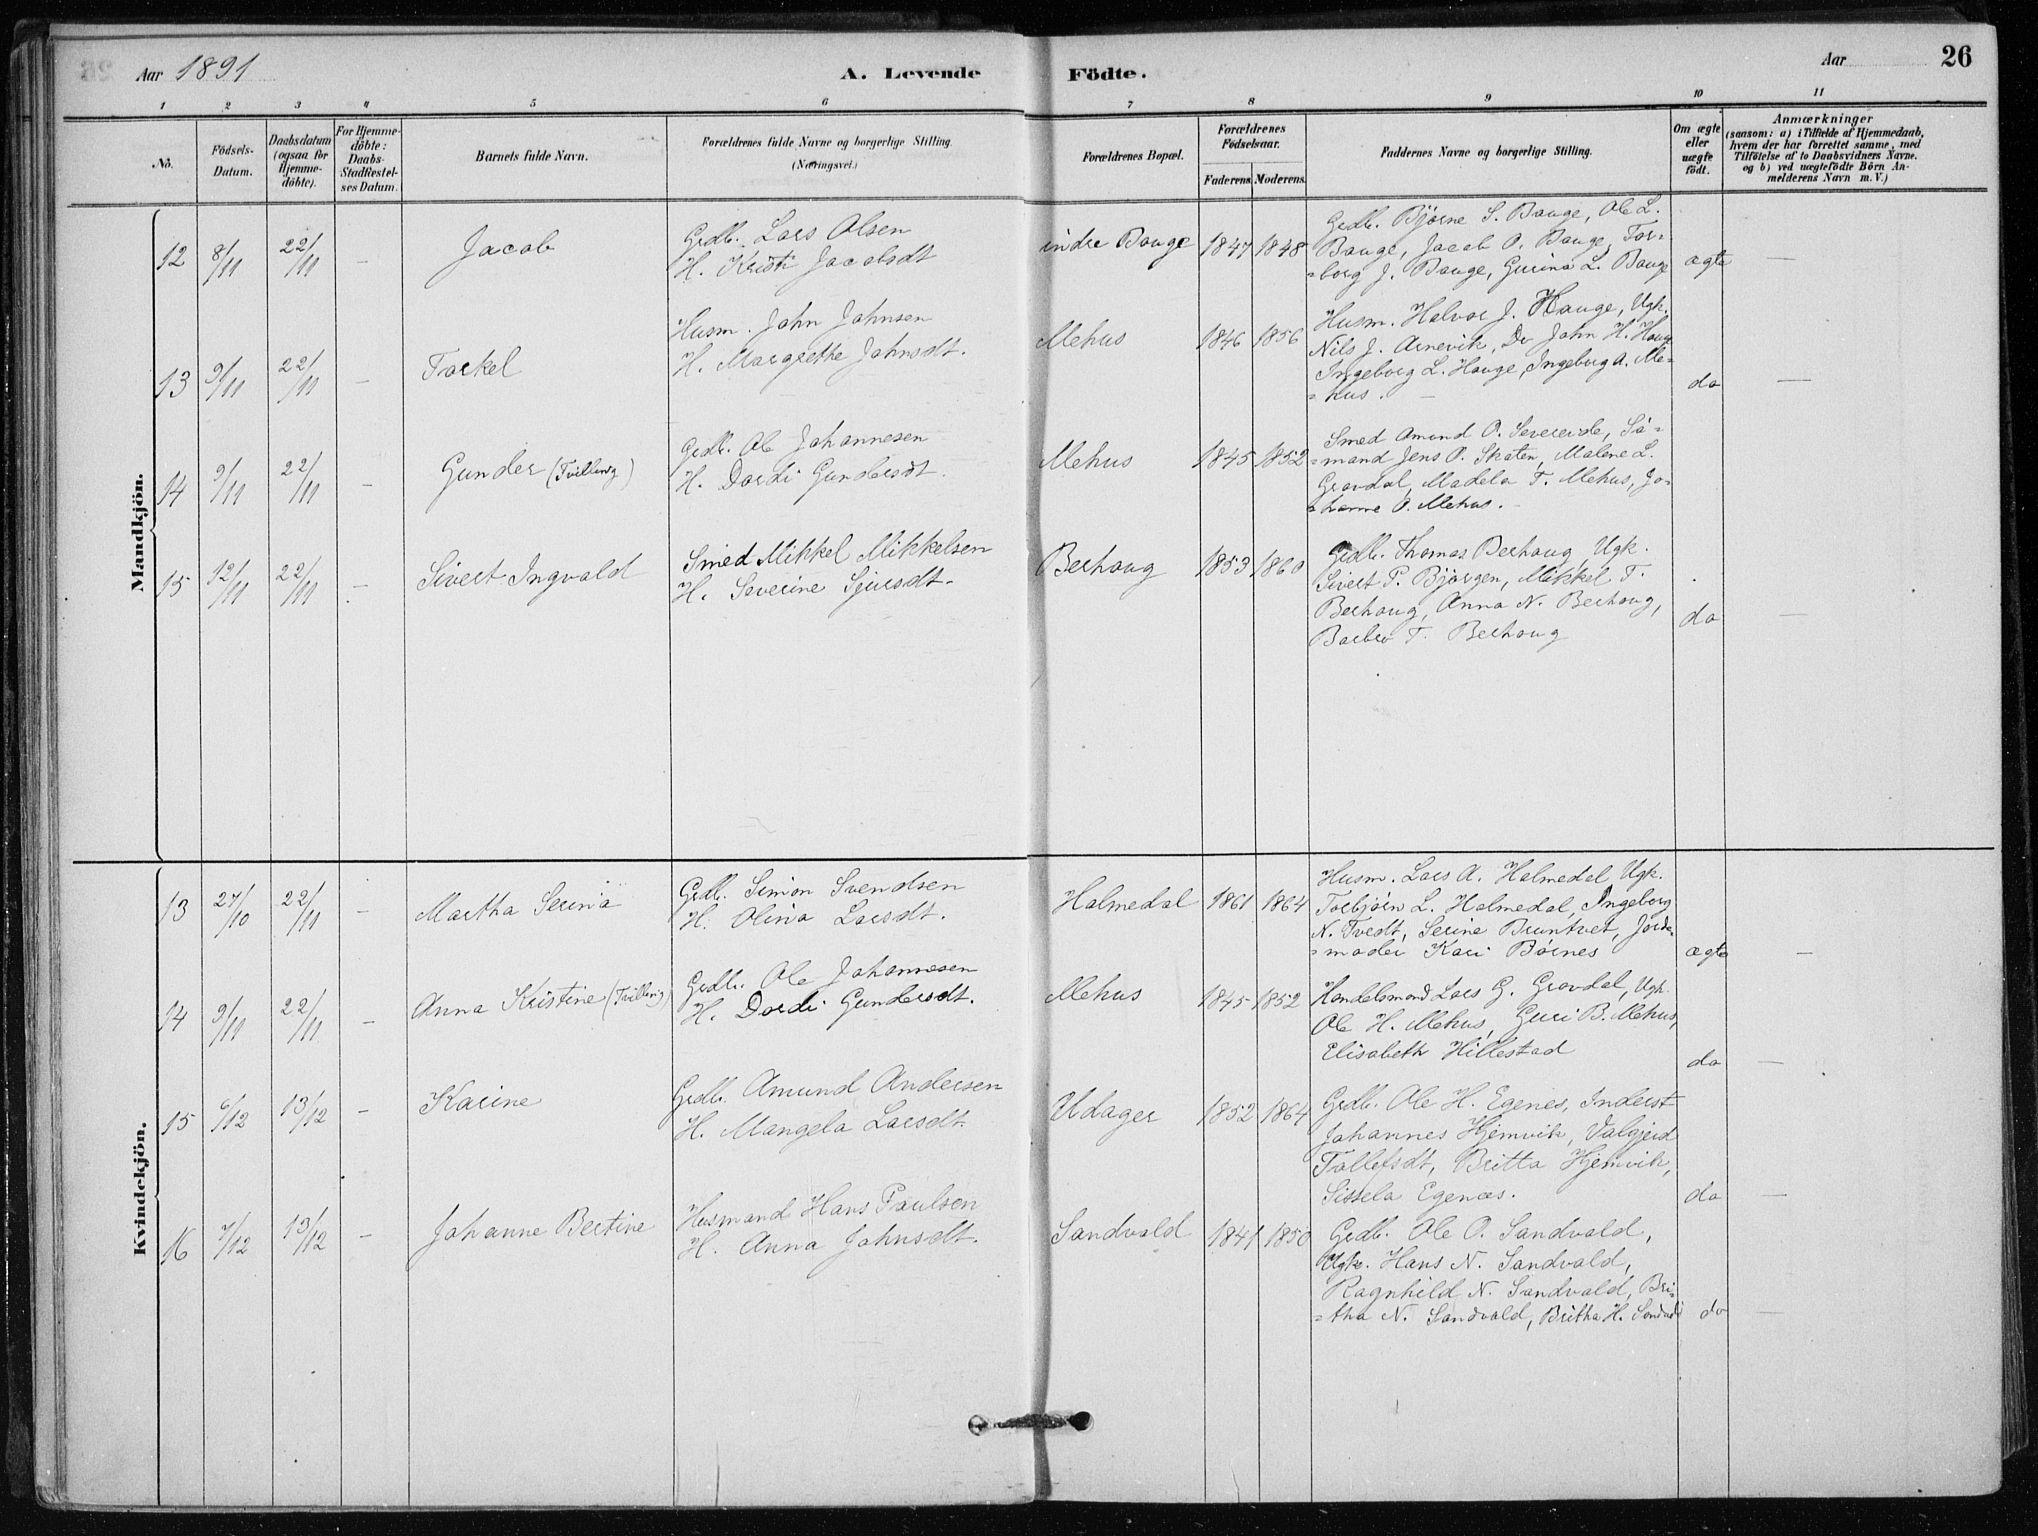 Aar 1891
A. Levende Födte.
Aar
26
1 2 3 4 5 6 7 8 9 10 11
No.
Födsels-Datum.
Daabsdatum (ogsaa for Hjemme-döbte).
For Hjemme-döbte: Daabs-Stadfæstel-ses Datum.
Barnets fulde Navn.
Forældrenes fulde Navne og borgerlige Stilling. (Næringsvei.)
Forældrenes Bopæl.
Forældrenes Födselsaar.
Faderens. Moderens.
Faddernes Navne og borgerlige Stilling.
Om ægte eller uægte födt.
Anmærkninger
(saasom: a) i Tilfælde af Hjemmedaab,
hvem der har forrettet samme, med
Tilföielse af to Daabsvidners Navne.
og b) ved uægtefödte Börn An-
melderens Navn m. V.)
Mandkjön.
12 8/11 22/11 - Jacob
Grdb. Lars Olsen
H. Kristi Jacobsdt
indre Bauge 1847 1848
Grdb. Bjørne S. Bauge, Ole L.
Bauge, Jacob O. Bauge, Tor-
=borg J. Bauge, Gurina L. Bauge
ægte —
13 9/11 22/11 - Torkel
Husm. John Johnsen
H. Margrethe Johnsdt.
Mehus 1846 1856
Husm. Halvor J. Hauge, Ugk.
Nils J. Arnevik, Do John H. Hauge
Ingeborg L. Hauge, Ingeborg A. Me-
=hus. —
do —
14 9/11 22/11 - Gunder (Tvilling)
Grdb. Ole Johannesen
H. Dordi Gundersdt.
Mehus 1845 1852
Smed Amund O. Severeide, Sø-
=mand Jens O. Skaten, Malene L.
Gravdal, Madela T. Mehus, Jo-
=hanne O. Mehus. -
15 12/11 22/11 - Sivert Ingvald
Smed Mikkel Mikkelsen
H. Severine Sjursdt.
Berhoug 1853 1860
Grdb. Thomas Berhoug, Ugk.
Sivert P. Bjørgen, Mikkel T.
Berhoug, Anna N. Berhoug,
Barbro T. Berhoug
do —
Kvindekjön.
13 27/10 22/11 - Martha Serina
Grdb. Simon Svendsen
H. Olina Larsdt.
Halmedal 1861 1864
Husm. Lars A. Halmedal Ugk.
Torbjørn L. Halmedal, Ingeborg
N. Tvedt, Serine Bruntvet, Jorde-
=moder Kari Børnes
ægte —
14 9/11 22/11 - Anna Kristine (Tvilling)
Grdb. Ole Johannesen
H. Dordi Gundersdt.
Mehus 1845 1852
Handelsmand Lars G. Gravdal, Ugk.
Ole H. Mehus, Guri B. Mehus,
Elisabeth Hillestad
do —
15 6/12 13/12 - Karine
Grdb. Amund Andersen
H. Mangela Larsdt.
Udager 1852 1864
Grdb. Ole H. Egenes, Inderst
Johannes Hjemvik, Valgjerd
Tollefsdt, Britta Hjemvik,
Sissela Egenæs.
do —
16 7/12 13/12 - Johanne Bertine
Husmand Hans Paulsen
H. Anna Johnsdt.
Sandvald 1841 1850
Grdb. Ole O. Sandvald,
Ugk. Hans N. Sandvald,
Ragnhild N. Sandvald, Bri-
=tha N. Sandvald, Britha H. Sandvald
do —